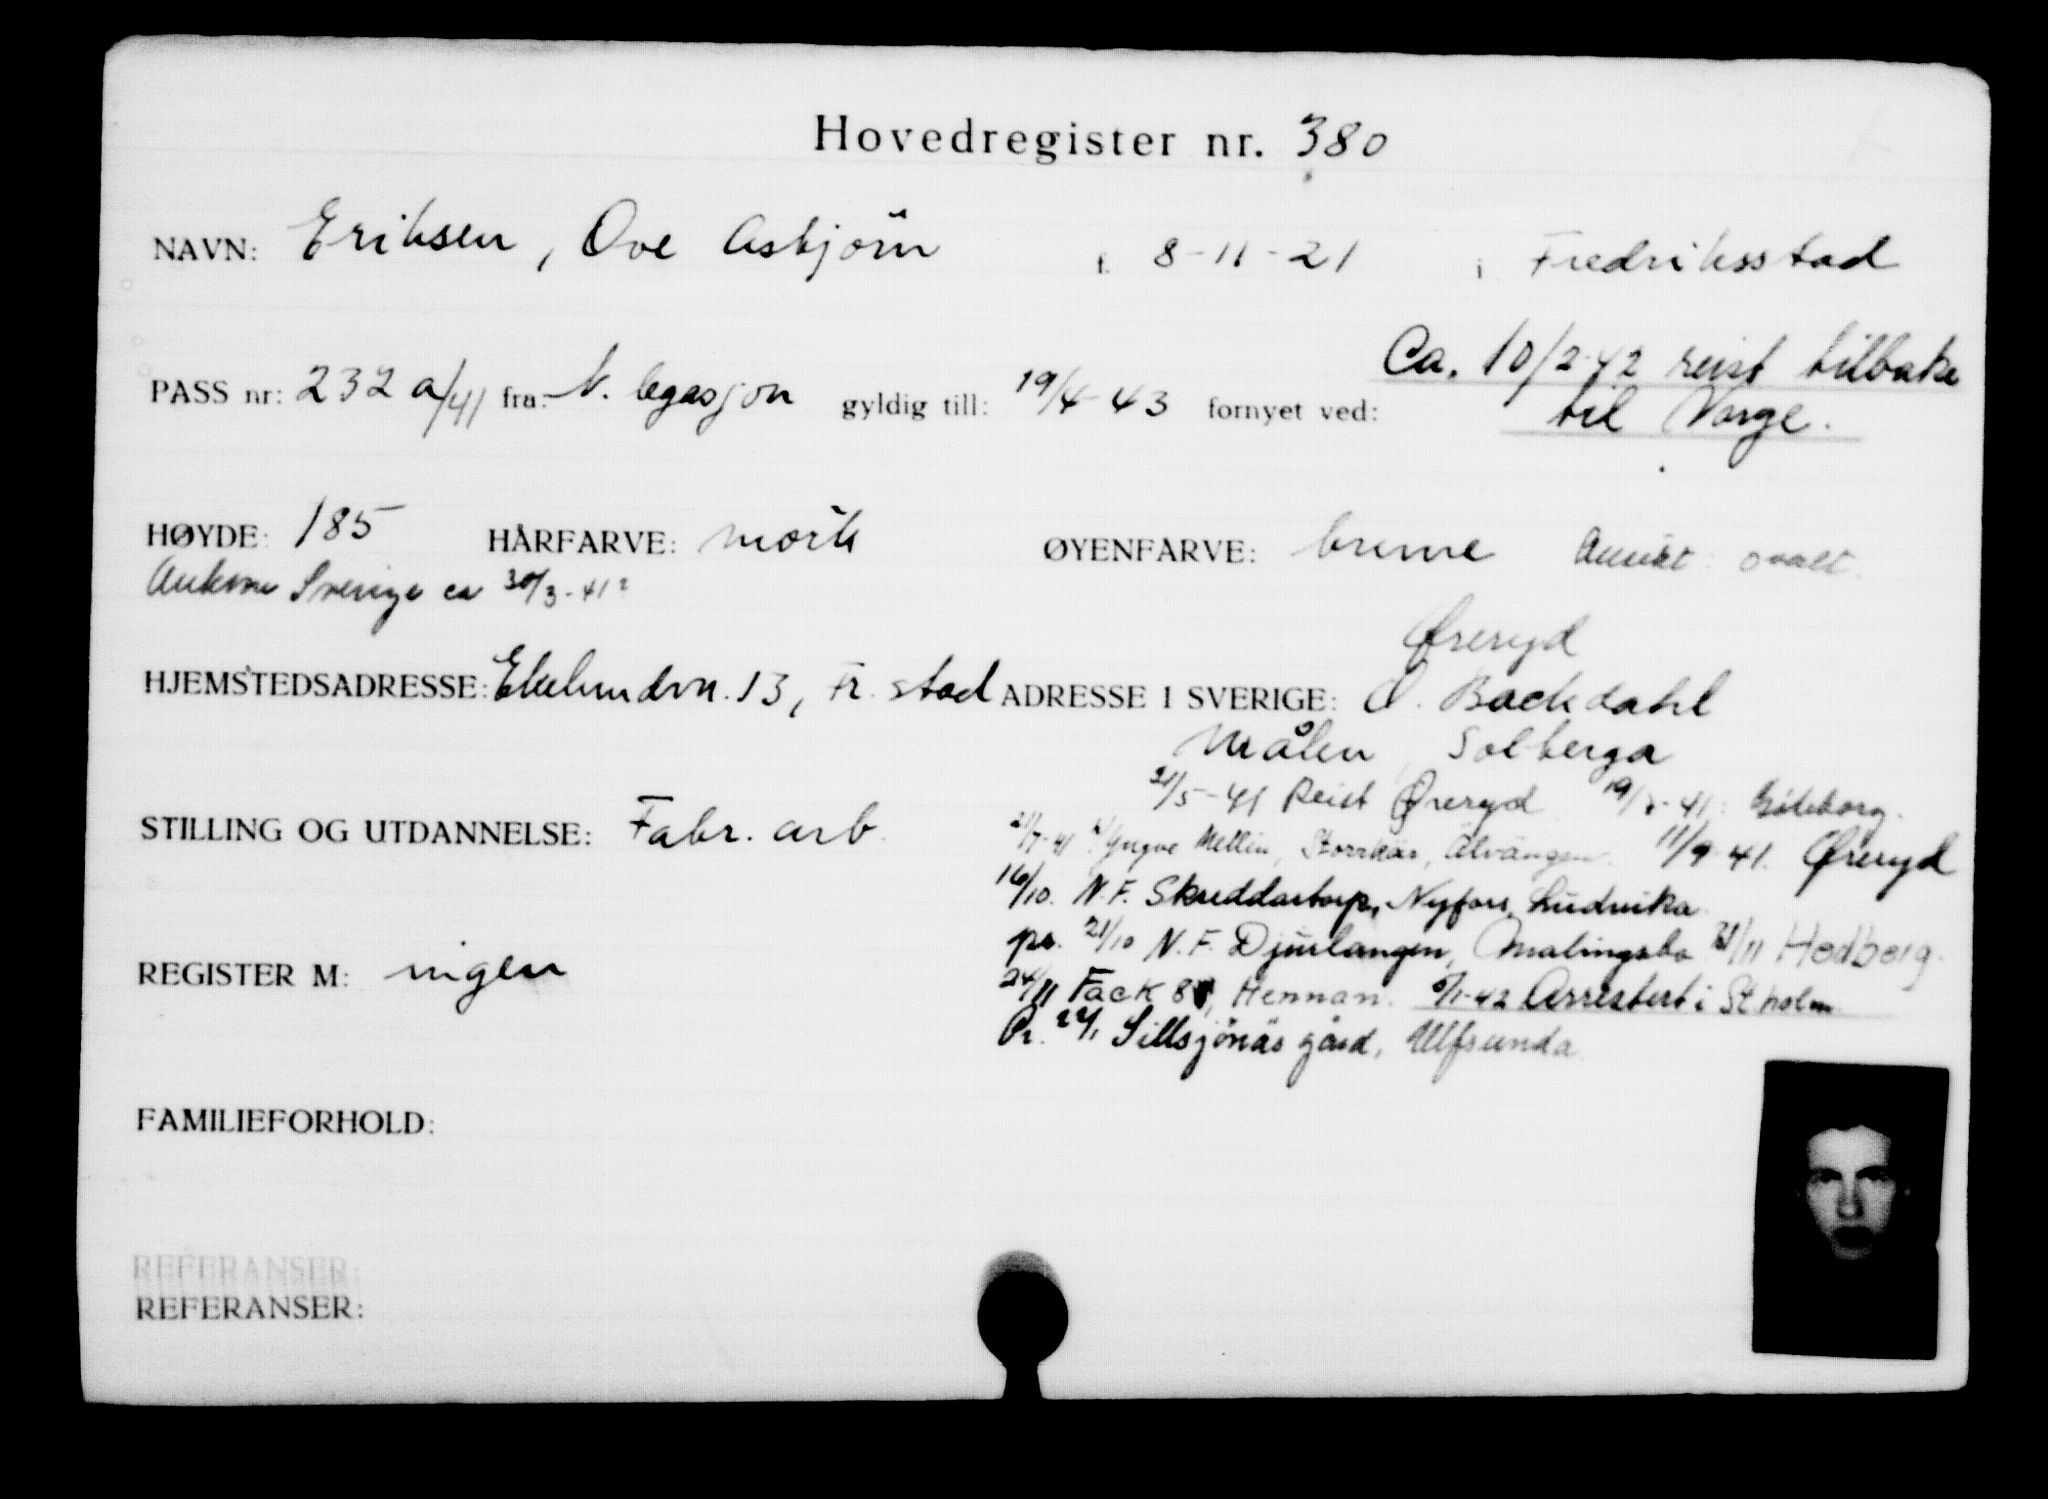 Hovedregister nr. 380
NAVN: Eriksen, Ove Asbjörn f. 8-11-21 i Fredriksstad
Ca. 10/2-42 reist tilbake
PASS nr: 232 a/41 fra: N. legasjon gyldig till: 19/4-43 fornyet ved: til Norge.
HØYDE: 185 HÅRFARVE: mörk ØYENFARVE: brune Ansikt: ovalt.
Ankom Sverige ca 30/3-41?
Øreryd
HJEMSTEDSADRESSE: Ekelundvn. 13, Fr. stad ADRESSE I SVERIGE: O. Backdahl
Målen, Solberga
21/5-41 Reist Øreryd 41: Göteborg.
STILLING OG UTDANNELSE: Fabr. arb
Yngve Mellin, Storrkär, Älvängen. 11/9-41. Øreryd
16/10. N.F. Skreddartorp, Nyfors, Ludvika
pr. 21/10 N.F. Djurlangen, Malingsbo 21/11 Hedberg.
REGISTER M: ingen
24/11 Fack 8, Hennan. 1-42 Arrestert i St.holm
Pr. 22/1 Sillsjönäs gård, Ulfsunda
FAMILIEFORHOLD:
REFERANSER:
REFERANSER: